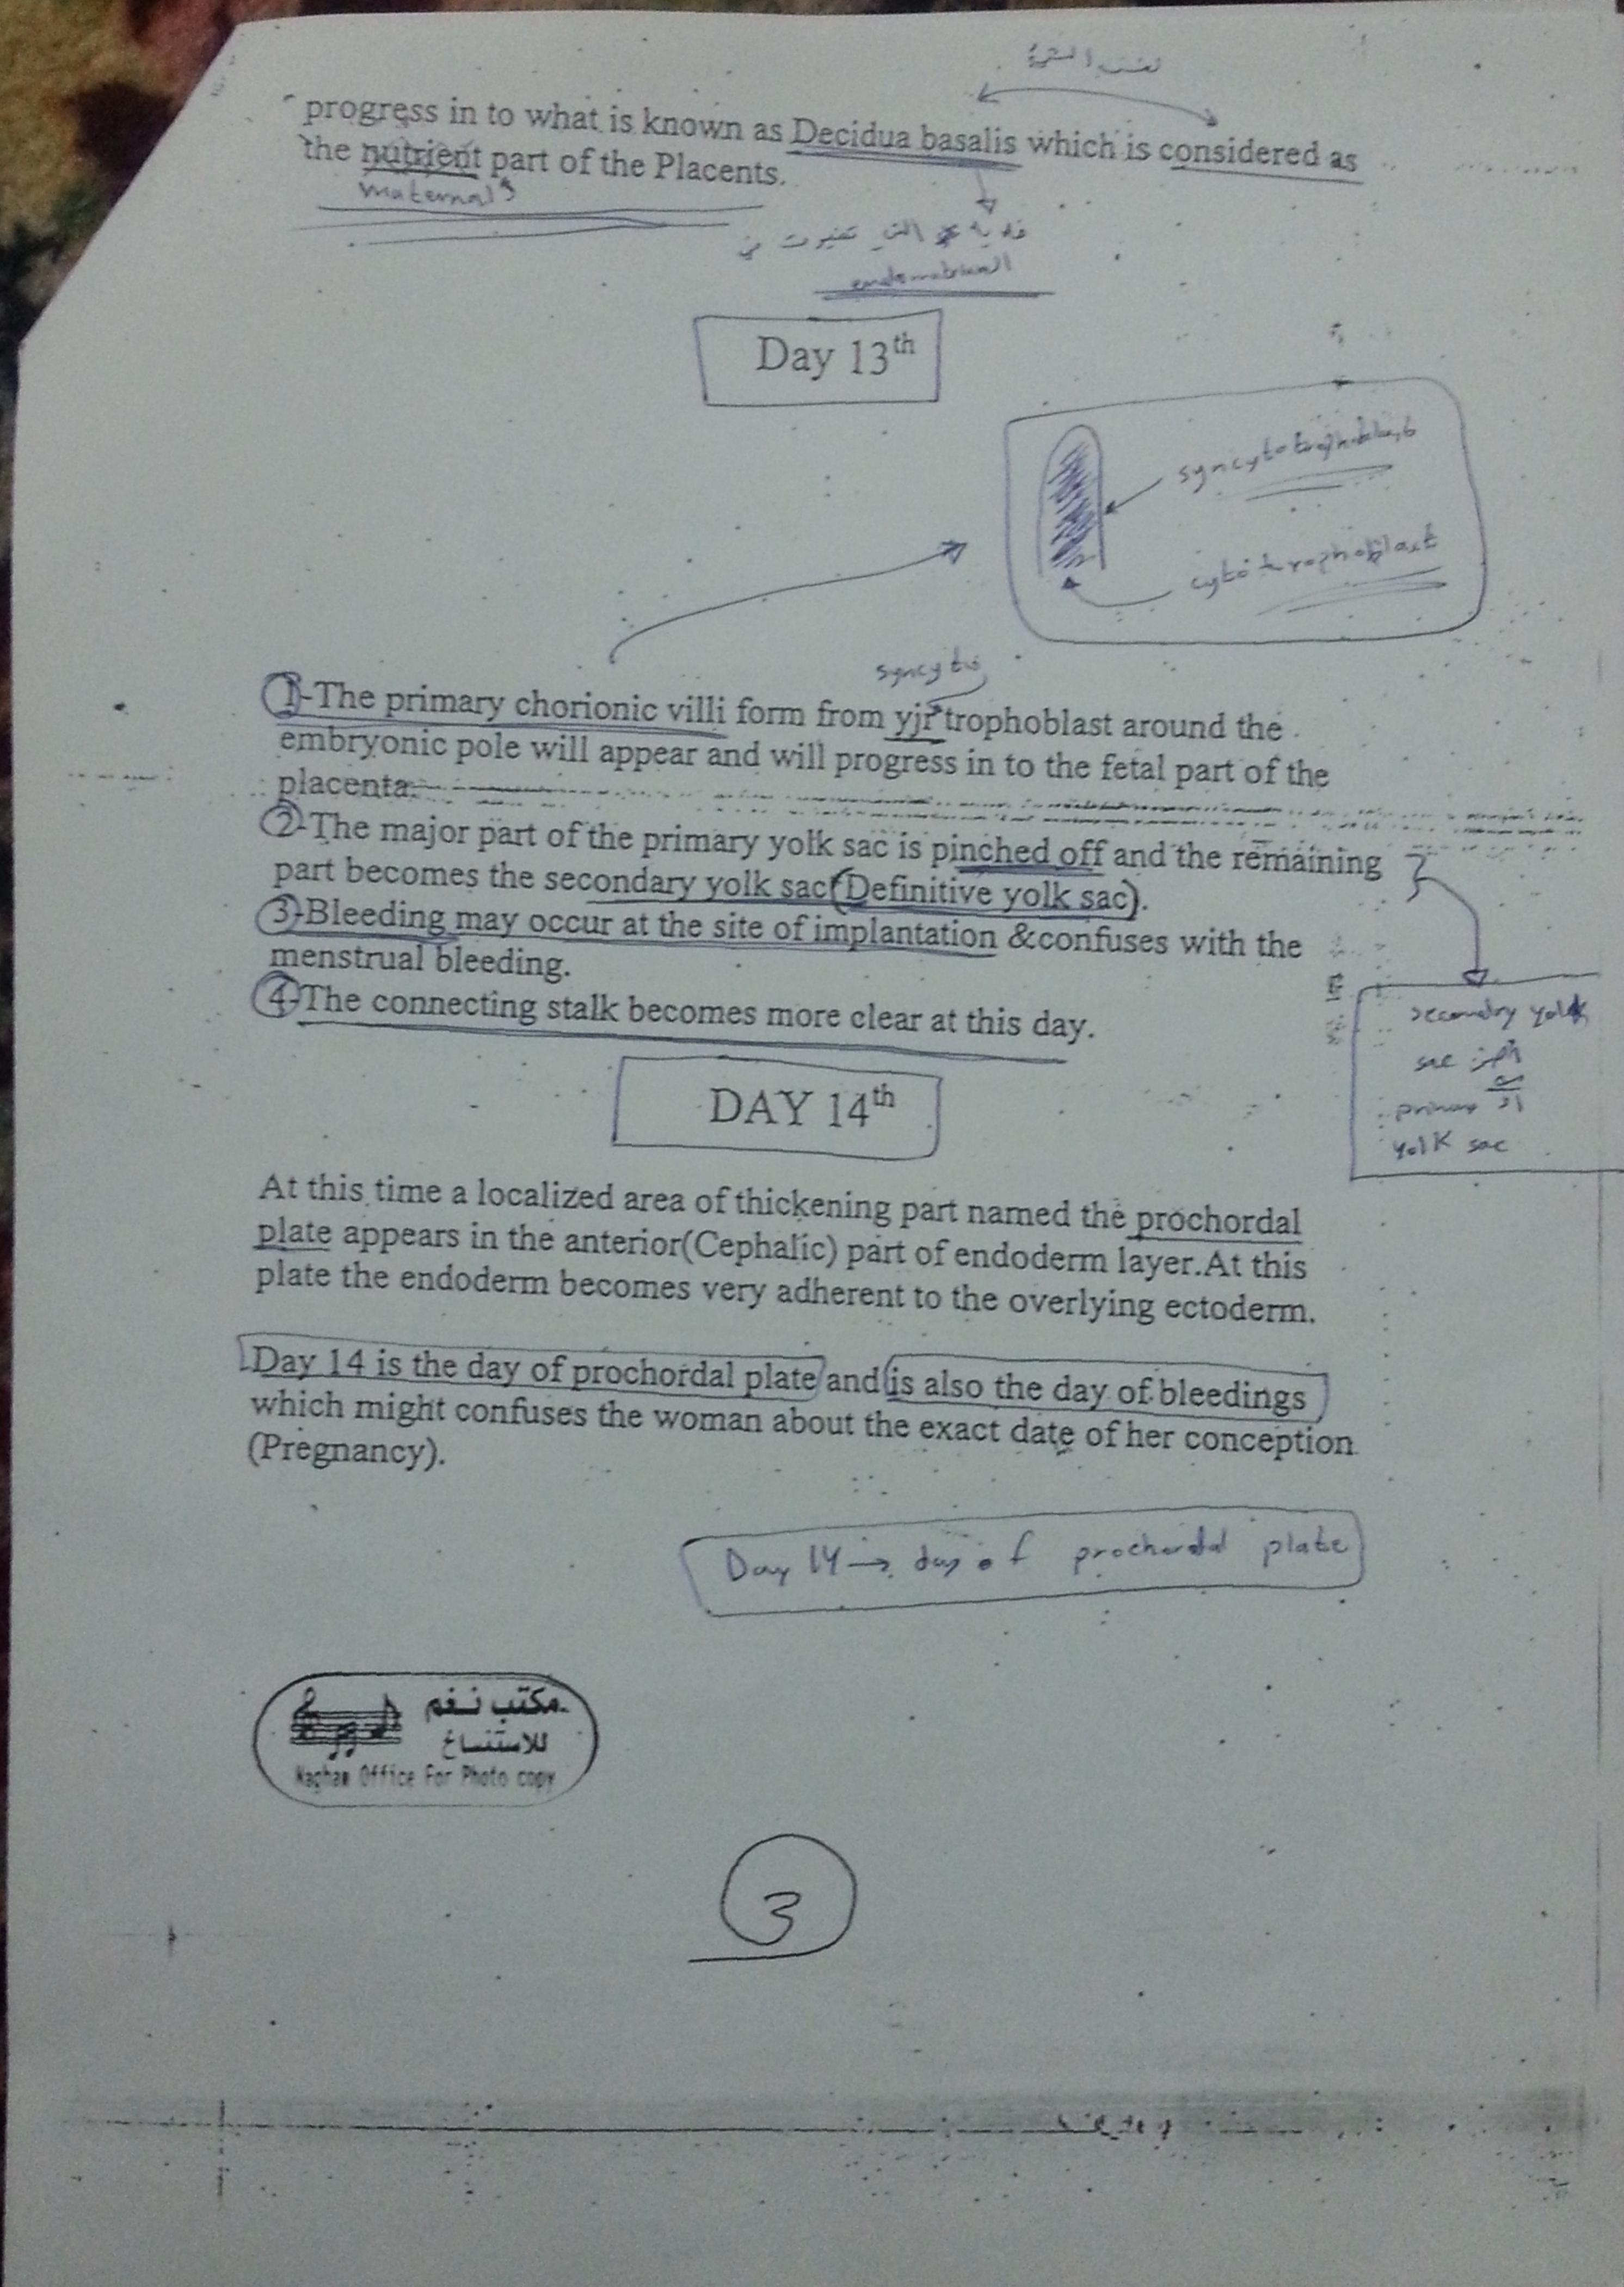 progress in to what is known as Decidua basalis which is considered as
the nutrient part of the Placents.
maternal
endometrium
Day 13th
syncytotrophoblast
cytotrophoblast
syncytio
1-The primary chorionic villi form from yjr trophoblast around the
embryonic pole will appear and will progress in to the fetal part of the
placenta.
2-The major part of the primary yolk sac is pinched off and the remaining
part becomes the secondary yolk sac(Definitive yolk sac).
3-Bleeding may occur at the site of implantation &confuses with the
menstrual bleeding.
4-The connecting stalk becomes more clear at this day.
secondry yolk
sac
primary
yolk sac
DAY 14th
At this time a localized area of thickening part named the prochordal
plate appears in the anterior(Cephalic) part of endoderm layer.At this
plate the endoderm becomes very adherent to the overlying ectoderm.
Day 14 is the day of prochordal plate and is also the day of bleedings
which might confuses the woman about the exact date of her conception
(Pregnancy).
Day 14 → day of prochordal plate
مكتب نغم
للاستنساخ
Nagham Office For Photo copy
3